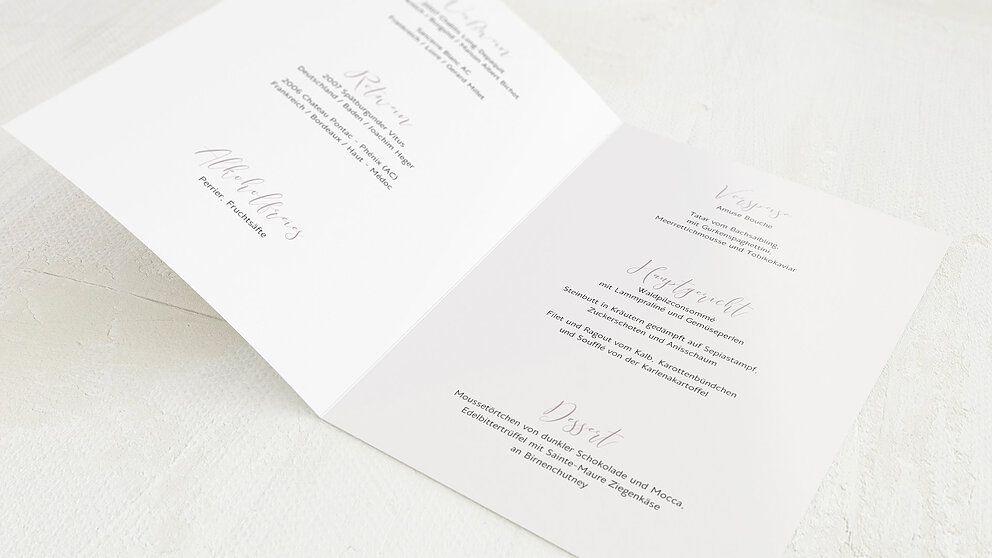 Weißwein
2007 Chablis Long Depaquit
Frankreich / Burgund / Maison Albert Bichot
Sancerre Blanc AC
Frankreich / Loire / Gerard Millet
Rotwein
2007 Spätburgunder Vitus
Deutschland / Baden / Joachim Heger
2006 Chateau Pontac - Phénix (AC)
Frankreich / Bordeaux / Haut - Médoc
Alkoholfreies
Perrier, Fruchtsäfte
Vorspeise
Amuse Bouche
Tatar vom Bachsaibling,
mit Gurkenspaghettini
Meerrettichmousse und Tobikokaviar
Hauptgericht
Waldpilzconsommé
mit Lammpraliné und Gemüseperlen
Steinbutt in Kräutern gedämpft auf Sepiastampf,
Zuckerschoten und Anisschaum
Filet und Ragout vom Kalb, Karottenbündchen
und Soufflé von der Karlenakartoffel
Dessert
Moussetörtchen von dunkler Schokolade und Mocca,
Edelbittertrüffel mit Sainte-Maure Ziegenkäse
an Birnenchutney